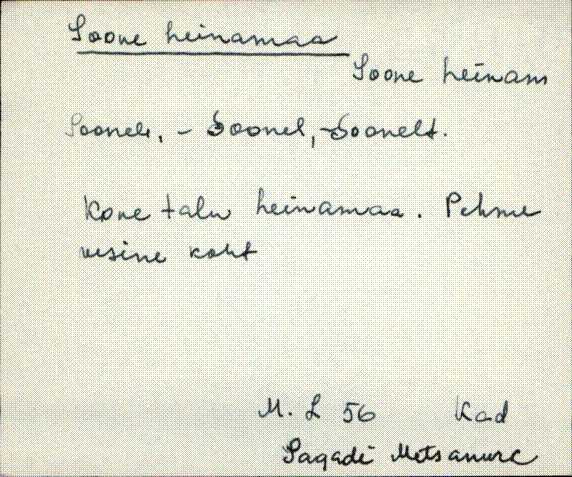 Soone heinamaa
Soone heinam
Soonele, - Soonel, - Soonelt.
Kone talu heinamaa. Pehme
vesine koht
M. L 56 Kad
Sagadi Metsanurc